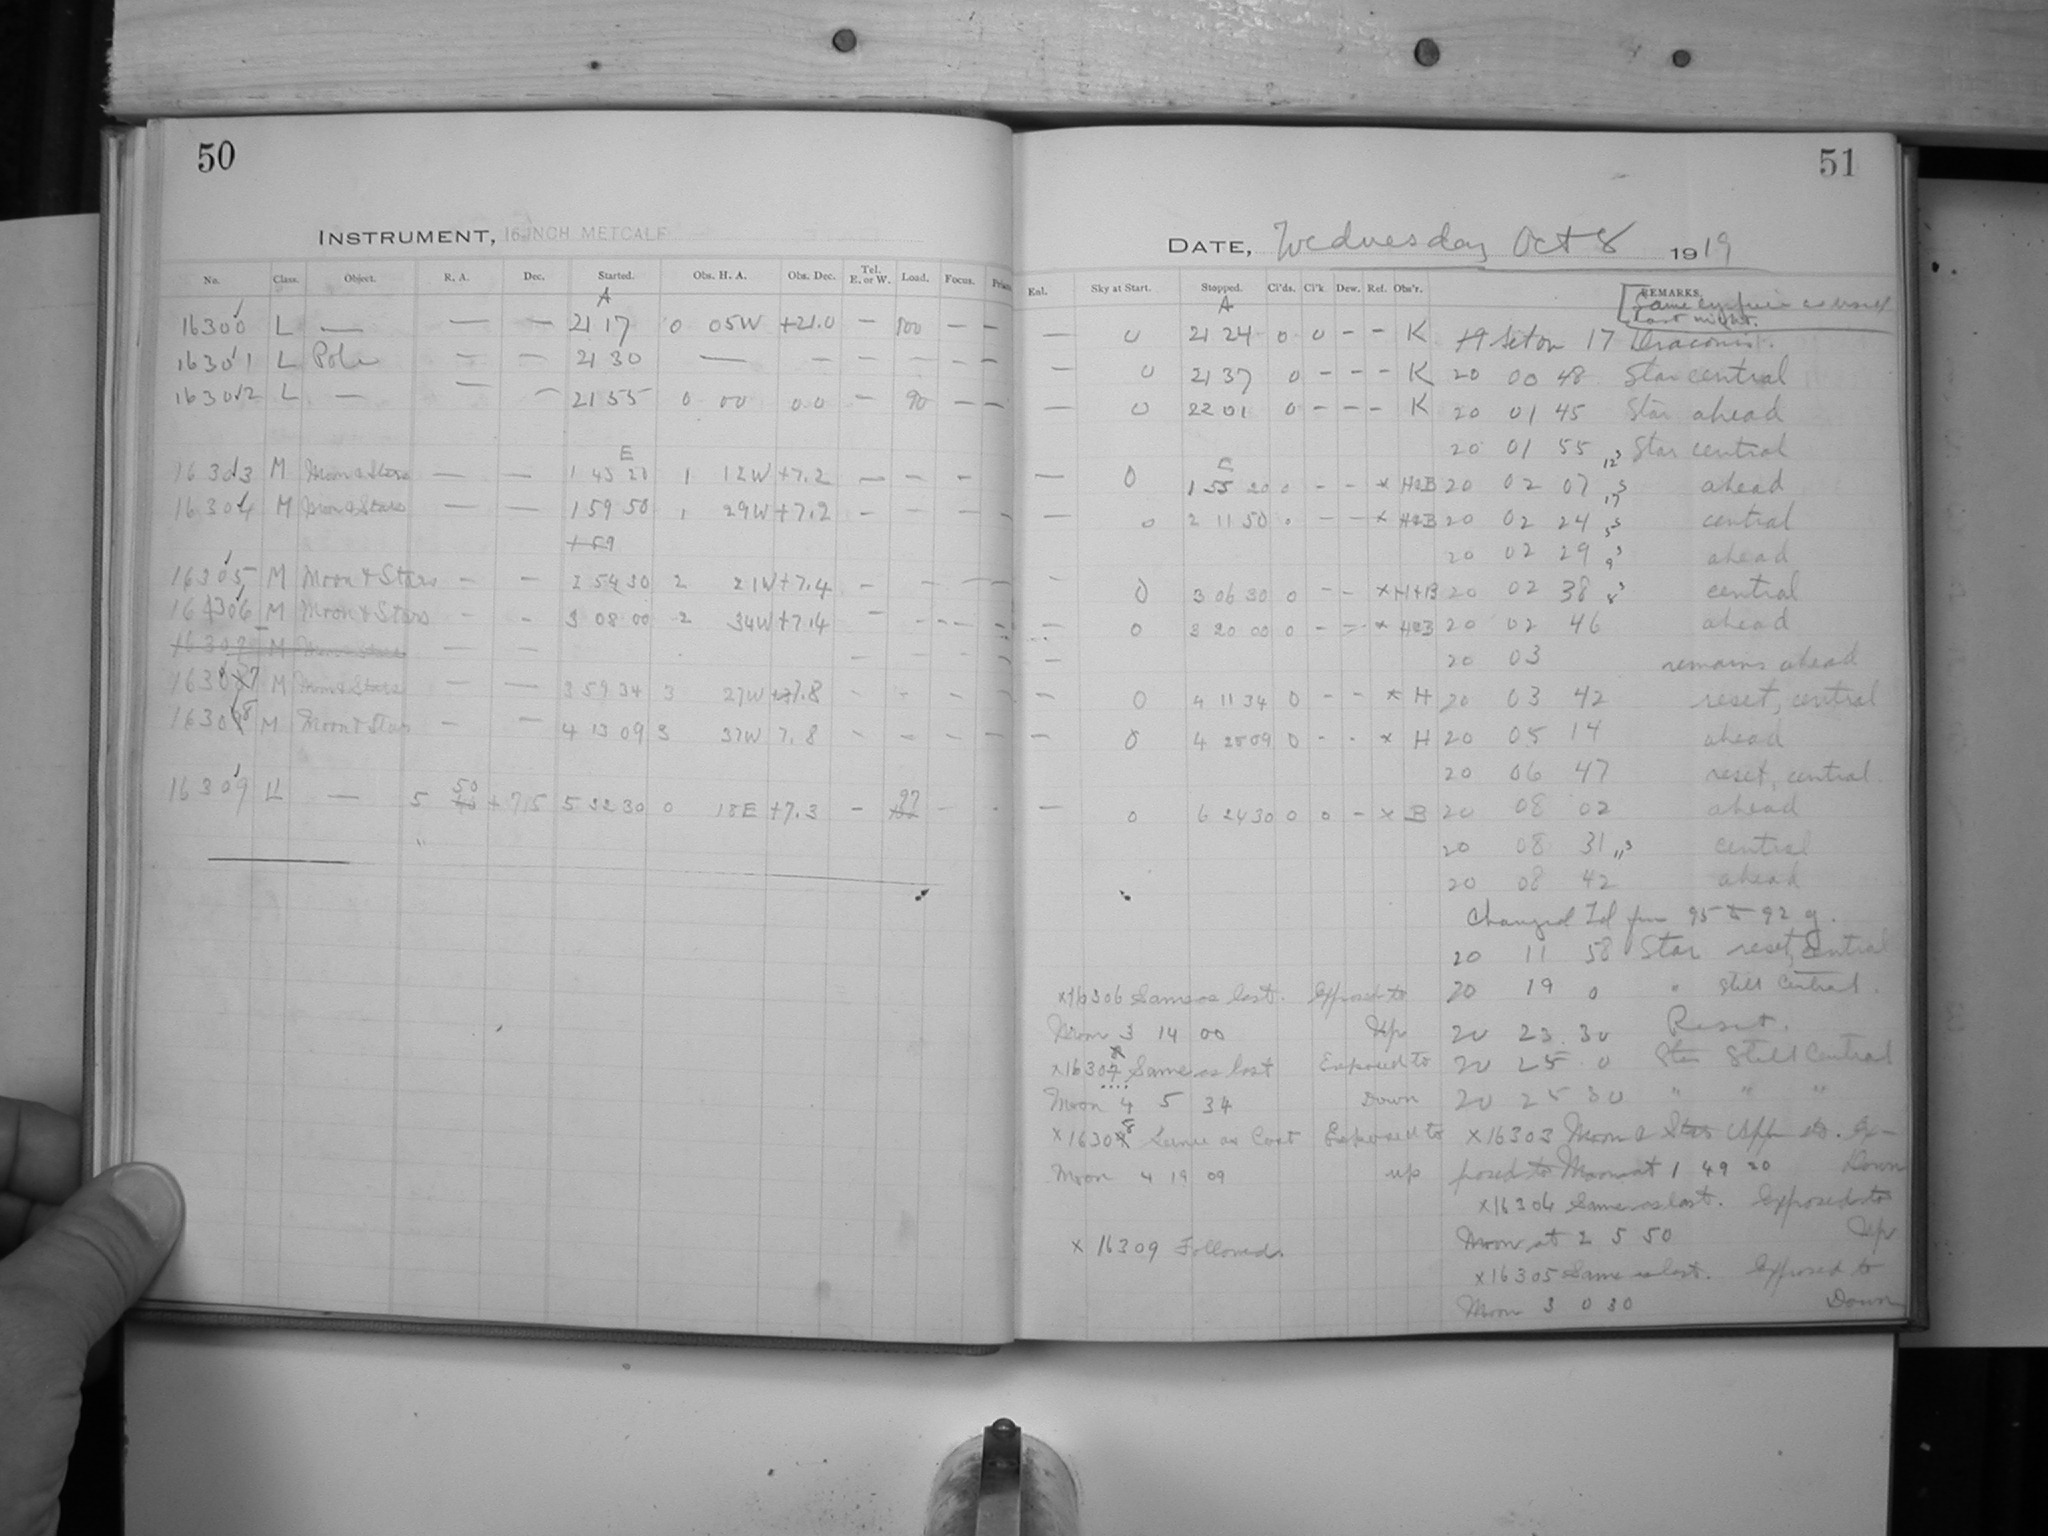 50
INSTRUMENT, 16 INCH METCALF
No. Class. Object. R. A. Dec. Started. Obs. H. A. Obs. Dec. Tel. E. or W. Load. Focus.
A
16300 L — — — 21 17 0 05W +21.0 — 100 — —
16301 L Pole — — 21 30 — — — — — —
16302 L — — — 21 55 0 00 0.0 — 90 — —
E
16303 M Moon & Stars — — 1 43 20 1 12W +7.2 — — —
16304 M Moon & Stars — — 1 59 50 1 29W +7.2 — — — —
1 59
16305 M Moon & Stars — — 2 54 30 2 21W +7.4 — — —
16306 M Moon & Stars — — 3 08 00 2 34W +7.4 — — — —
16307 M Moon & Stars — — — — — —
16307 M Moon & Stars — — 3 59 34 3 27W +7.8 — — — —
16308 M Moon & Stars — — 4 13 09 3 37W 7.8 — — — —
16309 LL — 5 50 +7.5 5 32 30 0 18E +7.3 — 97 —
51
DATE, Wednesday Oct 8 1919
Enl. Sky at Start. Stopped. Cl'ds. Cl'k Dew. Ref. Obs'r. REMARKS.
Same as last night.
A
— 0 21 24 0 0 — — K H set on 17 Draconis.
— 0 21 37 0 — — — K 20 00 48 Star central
— 0 22 01 0 — — — K 20 01 45 Star ahead
20 01 55 12s Star central
— 0 1 55 20 0 — — x H&B 20 02 07 17s ahead
— 0 2 11 50 0 — — x H&B 20 02 24 5s central
20 02 29 9s ahead
— 0 3 06 30 0 — — x H+B 20 02 38 8s central
— 0 3 20 00 0 — — x H&B 20 02 46 ahead
— 20 03 remains ahead
— 0 4 11 34 0 — — x H 20 03 42 reset, central
— 0 4 25 09 0 — — x H 20 05 14 ahead
20 06 47 reset, central.
— 0 6 24 30 0 0 — x B 20 08 02 ahead
20 08 31 11s central
20 08 42 ahead
Changed Ld from 95 to 92 g.
20 11 58 Star reset, central
20 19 0 " still central.
20 23 30 Reset.
20 25 0 Star Still Central
20 25 30 " " "
x16306 Same as last. Exposed to
Moon 3 14 00 Up
x16307 Same as last Exposed to
Moon 4 5 34 Down
x16308 Same as last Exposed to
Moon 4 19 09 up
x 16309 Followed.
x16303 Moon & Stars Ex-
posed to Moon at 1 49 20 Down
x16304 Same as last. Exposed to
Moon at 2 5 50 Up
x16305 Same as last. Exposed to
Moon 3 0 30 Down